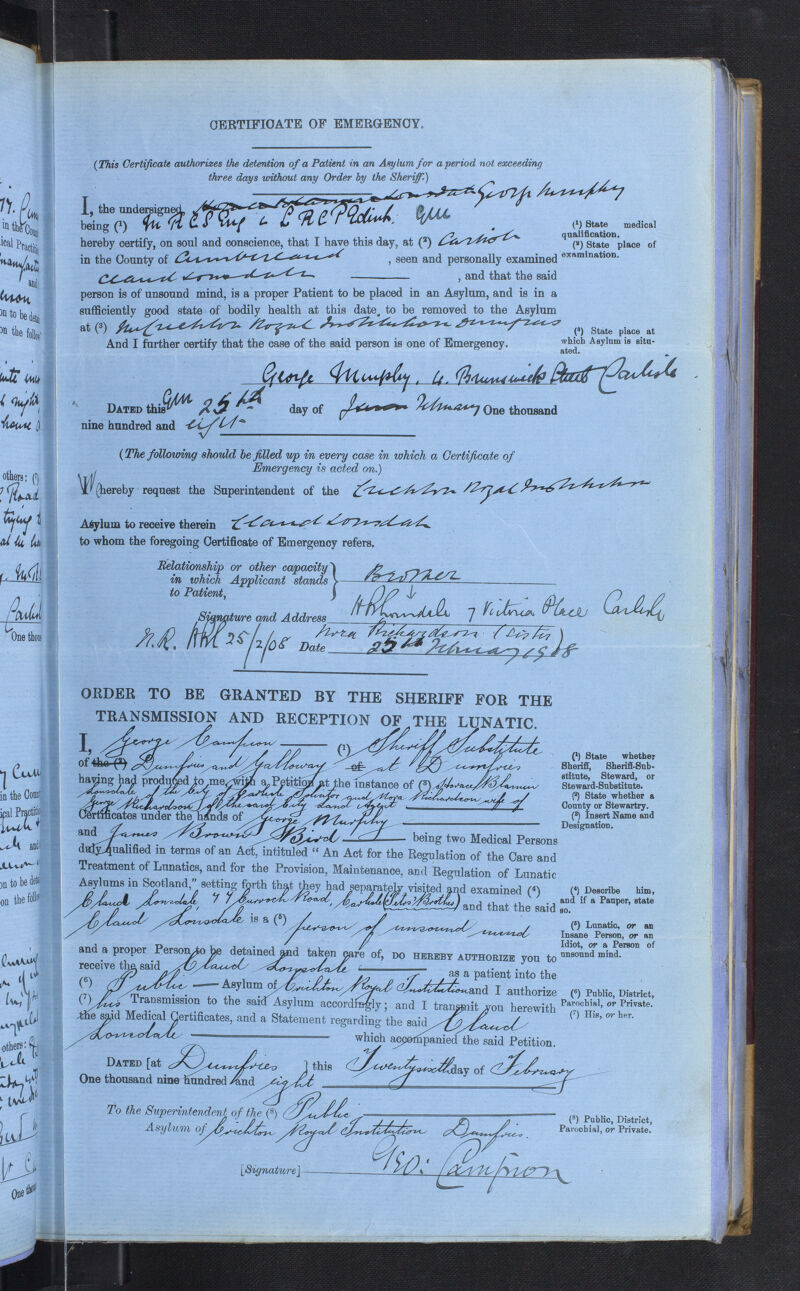 CERTIFICATE OF EMERGENCY.
(This Certificate authorizes the detention of a Patient in an Asylum for a period not exceeding
three days without any Order by the Sheriff.)
I, the undersigned George Murphy
being (1) M R C S Eng & L R C P Edinb. GM
hereby certify, on soul and conscience, that I have this day, at (2) Carlisle
in the County of Cumberland , seen and personally examined
Claud Lonsdale , and that the said
person is of unsound mind, is a proper Patient to be placed in an Asylum, and is in a
sufficiently good state of bodily health at this date to be removed to the Asylum
at (3) The Crichton Royal Institution Dumfries
And I further certify that the case of the said person is one of Emergency.
(1) State medical
qualification.
(2) State place of
examination.
(3) State place at
which Asylum is situ-
ated.
George Murphy, 4. Brunswick Street Carlisle
DATED this GM 25th day of February One thousand
nine hundred and eight
(The following should be filled up in every case in which a Certificate of
Emergency is acted on.)
We hereby request the Superintendent of the Crichton Royal Institution
Asylum to receive therein Claud Lonsdale
to whom the foregoing Certificate of Emergency refers.
Relationship or other capacity
in which Applicant stands
to Patient, } Brother
Signature and Address HBLonsdale 7 Victoria Place Carlisle
Nora Richardson (Sister)
N.R. HBL 25/2/08 Date 25th February 1908
ORDER TO BE GRANTED BY THE SHERIFF FOR THE
TRANSMISSION AND RECEPTION OF THE LUNATIC.
I, George Campion (1) Sheriff Substitute
of the (2) Dumfries and Galloway of at Dumfries
having had produced to me, with a Petition at the instance of (3) Horace
Lonsdale of the City of Carlisle Solicitor and Nora Richardson wife of
George Richardson of the said City Land Agent
Certificates under the hands of George Murphy
and James Broown Bird being two Medical Persons
duly qualified in terms of an Act, intituled "An Act for the Regulation of the Care and
Treatment of Lunatics, and for the Provision, Maintenance, and Regulation of Lunatic
Asylums in Scotland," setting forth that they had separately visited and examined (4)
Claud Lonsdale, 77 Currock Road, Carlisle (Brother) and that the said
Claud Lonsdale is a (5) person of unsound mind
and a proper Person to be detained and taken care of, DO HEREBY AUTHORIZE you to
receive the said Claud Lonsdale as a patient into the
(6) Public Asylum of Crichton Royal Institution and I authorize
(7) his Transmission to the said Asylum accordingly; and I transmit you herewith
the said Medical Certificates, and a Statement regarding the said Claud
Lonsdale which accompanied the said Petition.
(1) State whether
Sheriff, Sheriff-Sub-
stitute, Steward, or
Steward-Substitute.
(2) State whether a
County or Stewartry.
(3) Insert Name and
Designation.
(4) Describe him,
and if a Pauper, state
so.
(5) Lunatic, or an
Insane Person, or an
Idiot, or a Person of
unsound mind.
(6) Public, District,
Parochial, or Private.
(7) His, or her.
DATED [at Dumfries ] this Twentysixth day of February
One thousand nine hundred and eight
To the Superintendent of the (8) Public
Asylum of Crichton Royal Institution Dumfries.
(8) Public, District,
Parochial, or Private.
[Signature] Geo: Campion